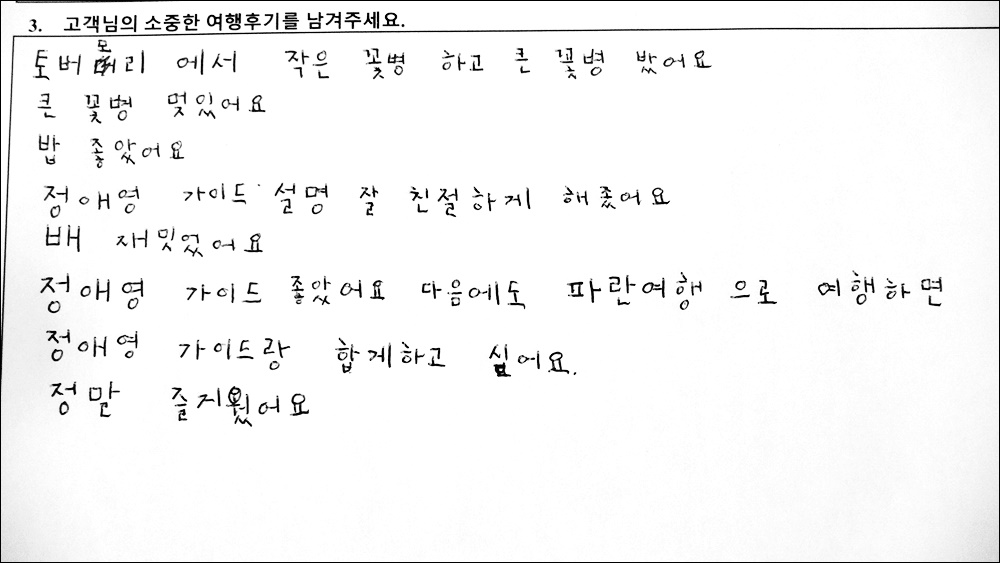 3. 고객님의 소중한 여행후기를 남겨주세요.
토버모리 에서 작은 꽃병 하고 큰 꽃병 밨어요
큰 꽃병 멎있어요
밥 좋았어요
정애영 가이드 설명 잘 친절하게 해줐어요
배 재밌었어요
정애영 가이드 좋았어요 다음에도 파란여행 으로 여행하면
정애영 가이드랑 합게하고 싶어요.
정말 즐거웠어요